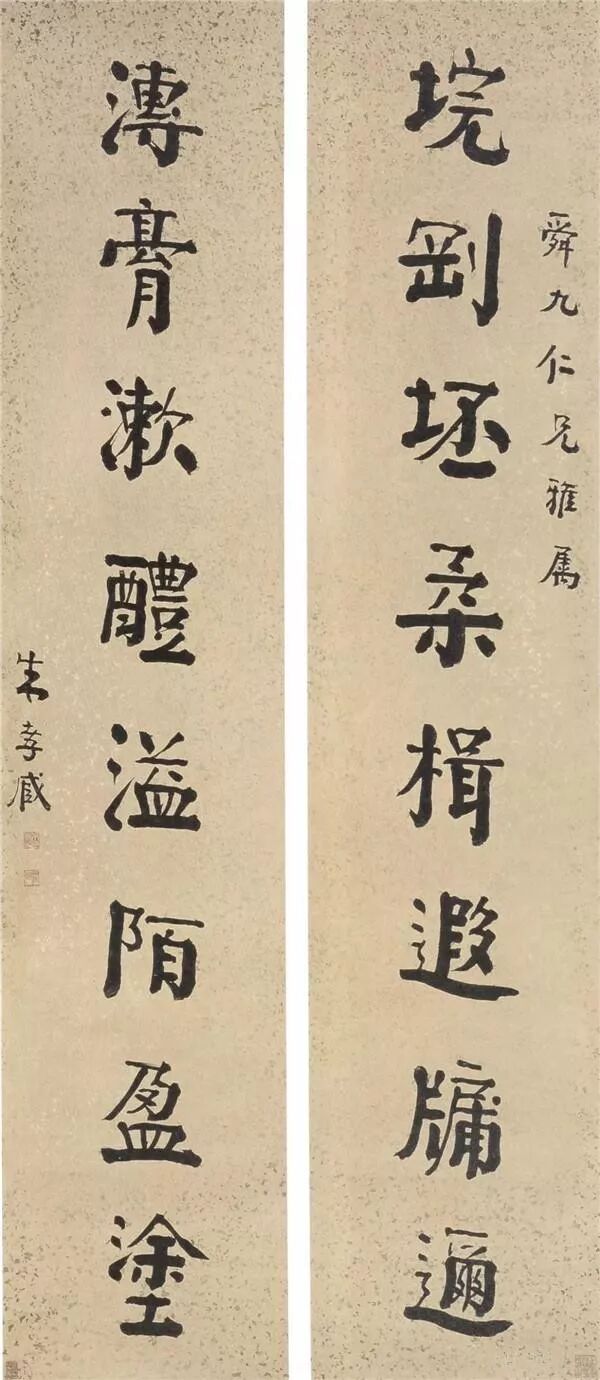 舜九仁兄雅属
垸剛坯柔楫遐牖邇
漙膏漱醴溢陌盈塗
朱孝臧